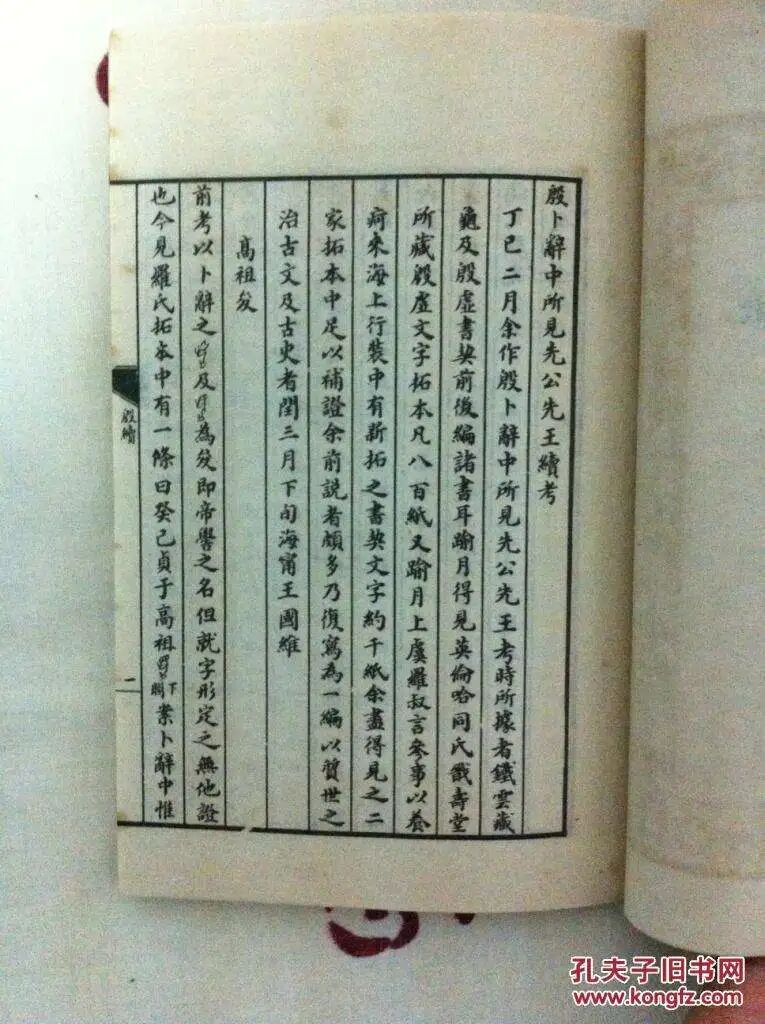 殷卜辭中所見先公先王續考
丁巳二月余作殷卜辭中所見先公先王考時所據者鐵雲藏
龜及殷虛書契前後編諸書耳踰月得見英倫哈同氏戩壽堂
所藏殷虛文字拓本凡八百紙又踰月上虞羅叔言參事以養
疴來海上行裝中有新拓之書契文字約千紙余盡得見之二
家拓本中足以補證余前說者頗多乃復寫為一編以質世之
治古文及古史者閏三月下旬海甯王國維
高祖夋
前考以卜辭之及為夋即帝嚳之名但就字形定之無他證
也今見羅氏拓本中有一條曰癸巳貞于高祖下闕案卜辭中惟
殷續
二
孔夫子旧书网
www.kongfz.com